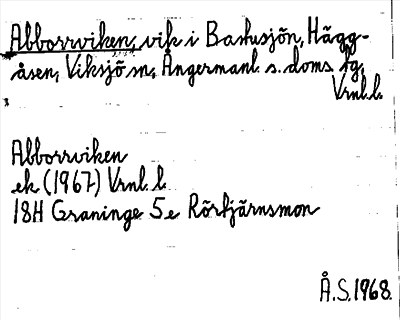 Abborrviken, vik i Baksjön, Hägg-
åsen, Viksjö sn, Ångermanl. s. doms. fg,
Vrnl. l.
Abborrviken
ek (1967) Vrnl. l.
18H Graninge 5e Rörtjärnsmon
Å.S. 1968.